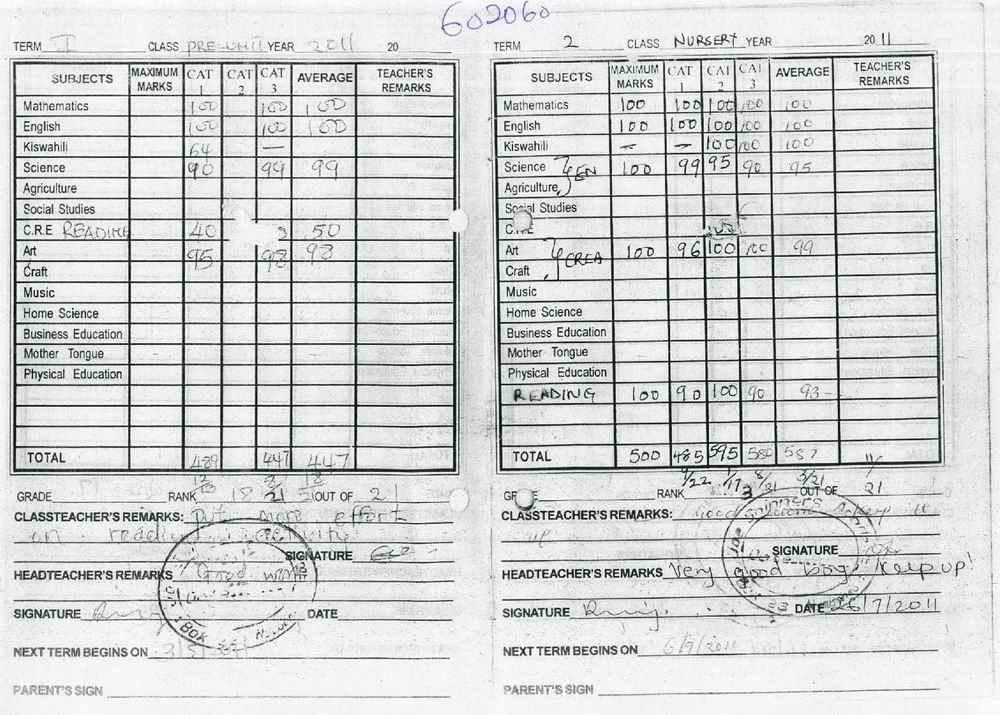 602060
TERM I CLASS PRE-UNIT YEAR 2011 20
SUBJECTS MAXIMUM MARKS CAT 1 CAT 2 CAT 3 AVERAGE TEACHER'S REMARKS
Mathematics 100 100 100
English 100 100 100
Kiswahili 64 —
Science 90 99 99
Agriculture
Social Studies
C.R.E READING 40 50
Art 95 98 93
Craft
Music
Home Science
Business Education
Mother Tongue
Physical Education
TOTAL 489 447 447
GRADE RANK 18 21 OUT OF 21
CLASSTEACHER'S REMARKS: Put more effort
on
SIGNATURE
HEADTEACHER'S REMARKS Good work
SIGNATURE DATE
NEXT TERM BEGINS ON
PARENT'S SIGN
TERM 2 CLASS NURSERY YEAR 2011
SUBJECTS MAXIMUM MARKS CAT 1 CAT 2 CAT 3 AVERAGE TEACHER'S REMARKS
Mathematics 100 100 100 100 100
English 100 100 100 100 100
Kiswahili — — 100 100 100
Science EN 100 99 95 90 95
Agriculture
Social Studies
C.R.E
Art CREA 100 96 100 100 99
Craft
Music
Home Science
Business Education
Mother Tongue
Physical Education
READING 100 90 100 90 93
TOTAL 500 485 595 580 587
RANK 9/22 1/17 8/21 3/21 OUT OF 21
CLASSTEACHER'S REMARKS: Good
up
SIGNATURE
HEADTEACHER'S REMARKS Very good Keep up!
SIGNATURE DATE 26/7/2011
NEXT TERM BEGINS ON 6/9/2011
PARENT'S SIGN